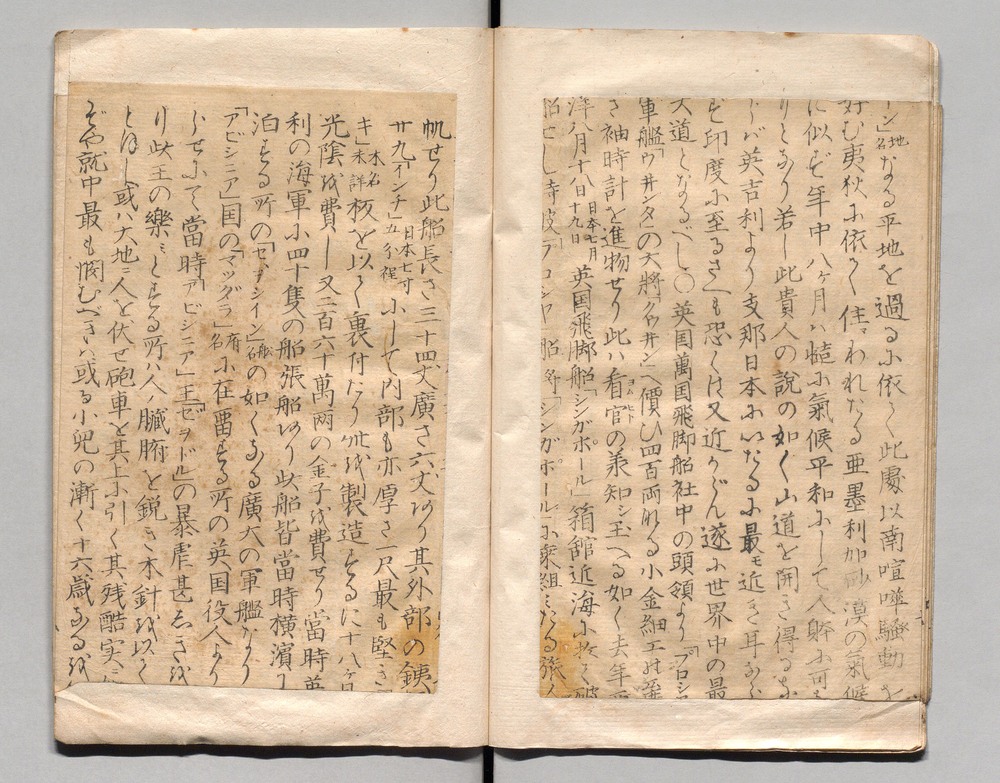 ーン」地名なる平地を過るに依て此處以南喧嘩騒動を
好む夷狄に依て住はれたる亜墨利加砂漠の氣候
に似ず年中八ケ月は慥に氣候平和にして人躰に可
りとなり若し此貴人の說の如く山道を開き得るな
らバ英吉利より支那日本にいたるに最モ近き耳なら
ず印度に至るさへも恐くは又近からん遂に世界中の最
大道となるべし○英国萬国飛脚船社中の頭領より「プロシヤ
軍艦「ウ井ンタ」の大將「クウ井ン」へ價ひ四百両斗る小金細工の
き袖時計を進物せり此ハ看官の羕知シ玉へる如く去年
洋八月十八日十九日日本七月英国飛脚船「シンガポール」箱館近海に於て破
船せし時彼プロシヤ船多「シンガポール」に乗組ミたる旅人
帆せり此船長さ三十四丈廣さ六丈あり其外部の銕
廿九「インチ」日本七寸五分程にして内部も亦厚さ一尺最も堅き
キ」木名未詳板を以て裏付たり此を製造するに十八ケ月
光陰を費し又二百六十萬両の金子を費せり當時英
利の海軍に四十隻の船張船あり此船皆當時横濱に
泊する所の「セ シイン」船名の如くなる廣大の軍艦なり
「アビシニア」国の「マツダラ」府名に在畱する所の英国役人より
らせにて當時「アビシニア」王「セヲドル」の暴虐甚しきを
り此王の樂ミとする所ハ人ノ臓腑を鋭き木針を以て
とほし或ハ大地ニ人を伏せ砲車を其上に引く其残酷実に
ぞや就中最も憫むべきハ或る小兒の漸く十六歳なるを